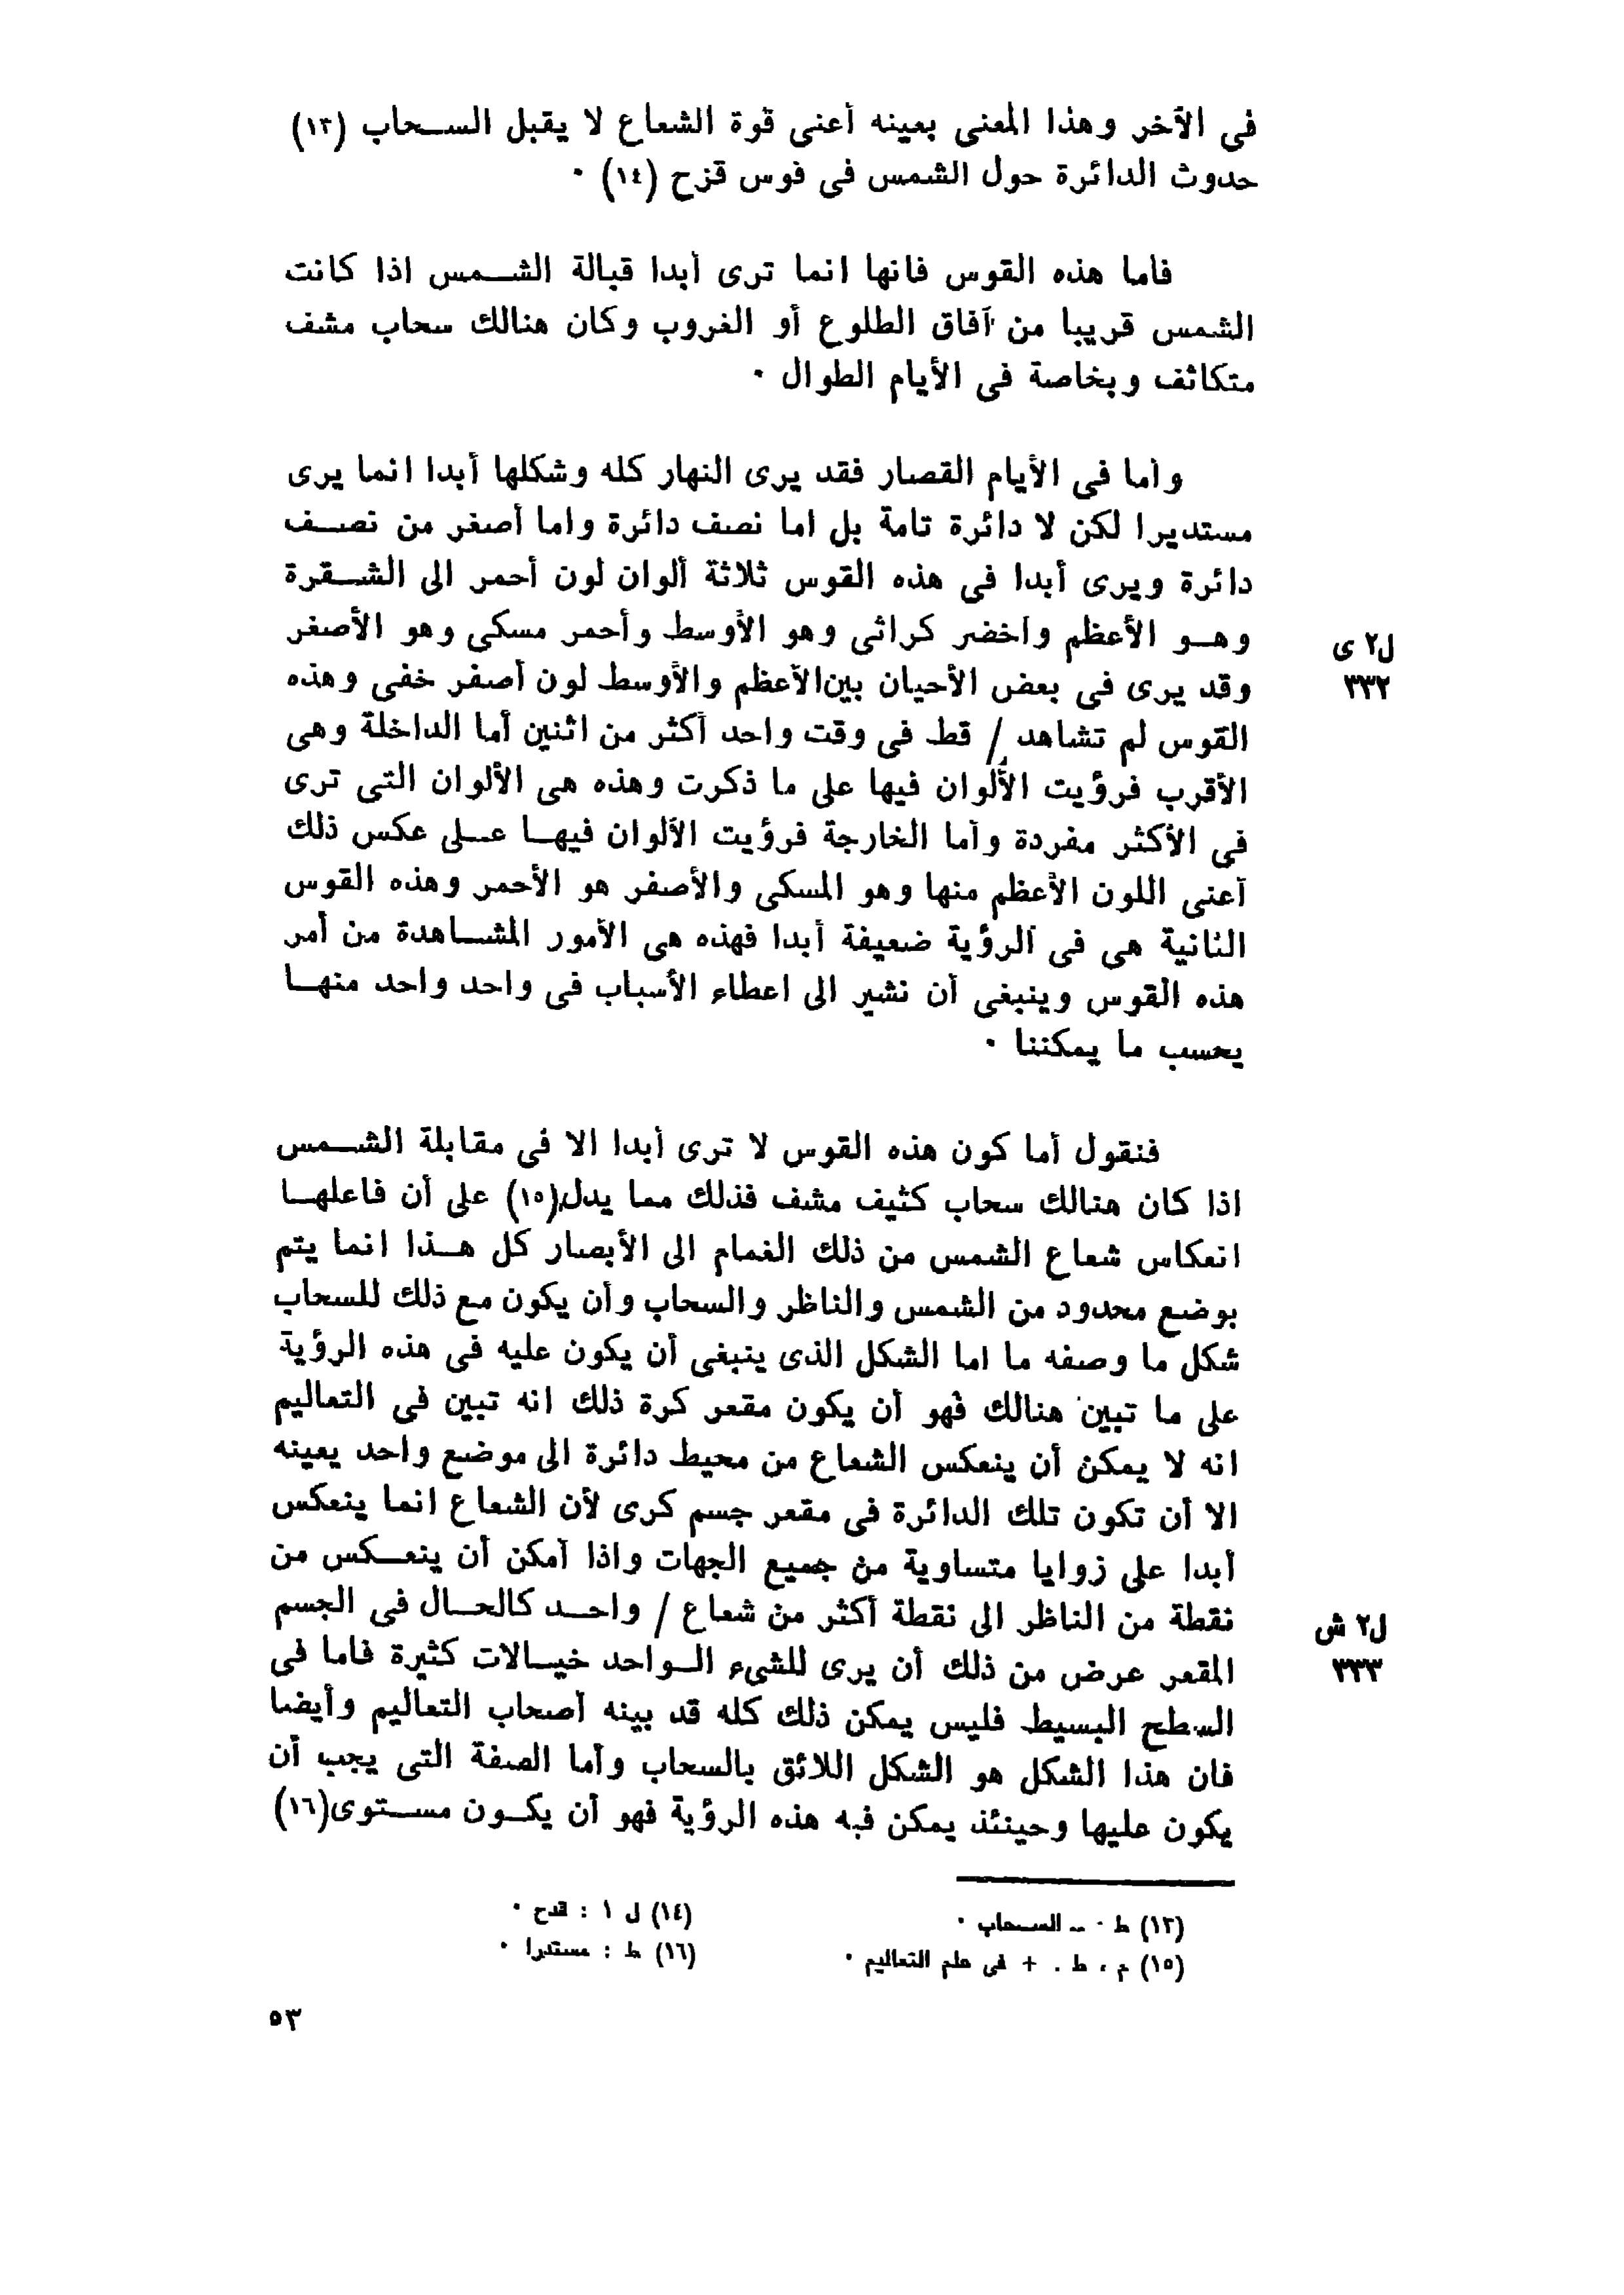 فى الآخر وهذا المعنى بعينه أعنى قوة الشعاع لا يقبل السحاب (١٣)
حدوث الدائرة حول الشمس فى قوس قزح (١٤) ·
فاما هذه القوس فانها انما ترى أبدا قبالة الشمس اذا كانت
الشمس قريبا من آفاق الطلوع أو الغروب وكان هنالك سحاب مشف
متكاثف وبخاصة فى الأيام الطوال ·
وأما فى الأيام القصار فقد يرى النهار كله وشكلها أبدا انما يرى
مستديرا لكن لا دائرة تامة بل اما نصف دائرة واما أصغر من نصف
دائرة ويرى أبدا فى هذه القوس ثلاثة ألوان لون أحمر الى الشقرة
وهو الأعظم وأخضر كراثى وهو الأوسط وأحمر مسكى وهو الأصغر
ل٢ ى
وقد يرى فى بعض الأحيان بين الأعظم والأوسط لون أصفر خفى وهذه
٣٣٢
القوس لم تشاهد / قط فى وقت واحد أكثر من اثنين أما الداخلة وهى
الأقرب فرؤيت الألوان فيها على ما ذكرت وهذه هى الألوان التى ترى
فى الأكثر مفردة وأما الخارجة فرؤيت الألوان فيها على عكس ذلك
أعنى اللون الأعظم منها وهو المسكى والأصفر هو الأحمر وهذه القوس
الثانية هى فى الرؤية ضعيفة أبدا فهذه هى الأمور المشاهدة من أمر
هذه القوس وينبغى أن نشير الى اعطاء الأسباب فى واحد واحد منها
يحسب ما يمكننا ·
فنقول أما كون هذه القوس لا ترى أبدا الا فى مقابلة الشمس
اذا كان هنالك سحاب كثيف مشف فذلك مما يدل(١٥) على أن فاعلها
انعكاس شعاع الشمس من ذلك الغمام الى الأبصار كل هذا انما يتم
بوضع محدود من الشمس والناظر والسحاب وأن يكون مع ذلك للسحاب
شكل ما وصفه ما اما الشكل الذى ينبغى أن يكون عليه فى هذه الرؤية
على ما تبين هنالك فهو أن يكون مقعر كرة ذلك انه تبين فى التعاليم
انه لا يمكن أن ينعكس الشعاع من محيط دائرة الى موضع واحد يعينه
الا أن تكون تلك الدائرة فى مقعر جسم كرى لأن الشعاع انما ينعكس
أبدا على زوايا متساوية من جميع الجهات واذا أمكن أن ينعكس من
نقطة من الناظر الى نقطة أكثر من شعاع / واحد كالحال فى الجسم
ل٢ ش
المقعر عرض من ذلك أن يرى للشىء الواحد خيالات كثيرة فاما فى
٣٣٣
السطح البسيط فليس يمكن ذلك كله قد بينه أصحاب التعاليم وأيضا
فان هذا الشكل هو الشكل اللائق بالسحاب وأما الصفة التى يجب أن
يكون عليها وحينئذ يمكن فيه هذه الرؤية فهو أن يكون مستوى(١٦)
(١٣) ط · ــ السحاب ·
(١٤) ل ١ : قدح ·
(١٥) م ، ط . + فى علم التعاليم ·
(١٦) ط : مستدرا ·
٥٣